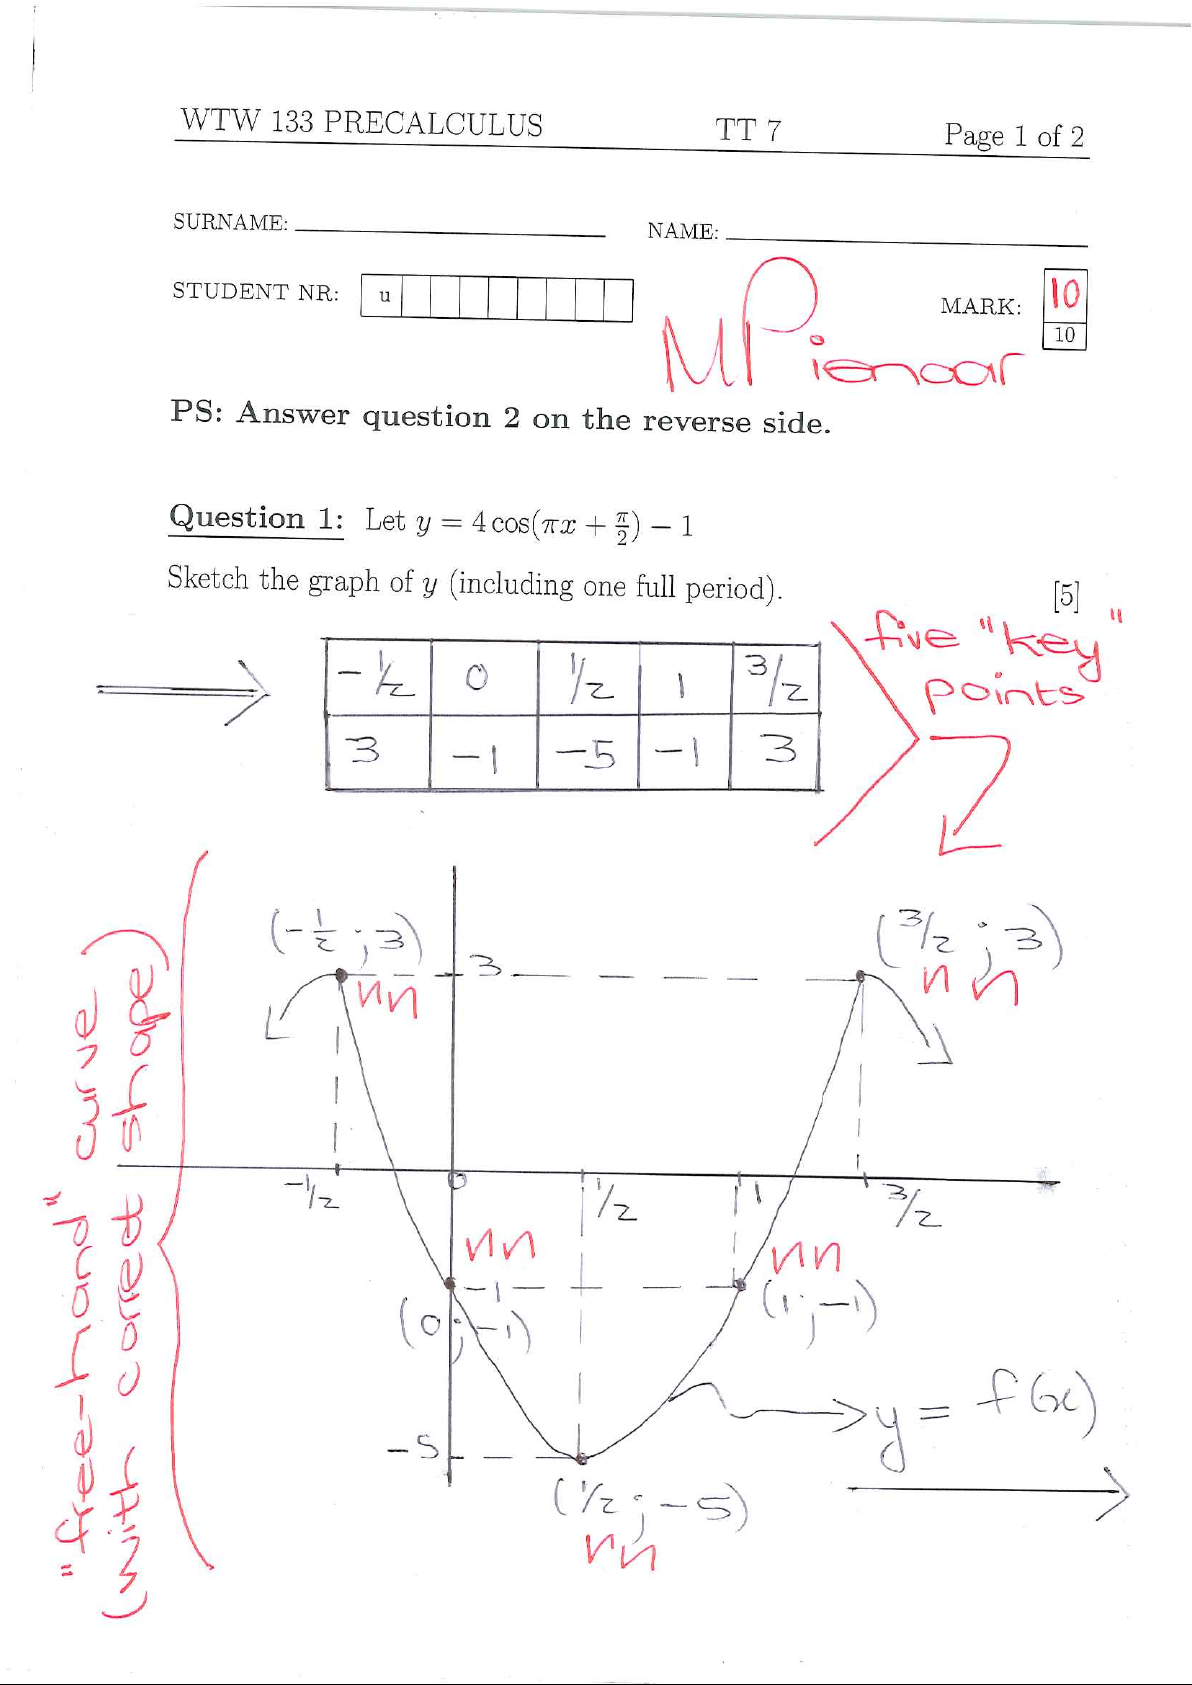 WTW 133 PRECALCULUS TT 7 Page 1 of 2
SURNAME: NAME:
STUDENT NR: u MARK: 10
10
PS: Answer question 2 on the reverse side.
Question 1: Let y = 4 cos(πx + π/2) − 1
Sketch the graph of y (including one full period). [5]
five "key"
points
-1/2 0 1/2 1 3/2
3 -1 -5 -1 3
(-1/2 ; 3) (3/2 ; 3)
3
-1/2 0 1/2 1 3/2
-1
(0 ; -1) (1 ; -1)
y = f(x)
-5
(1/2 ; -5)
"free-hand" curve
(with correct shape)